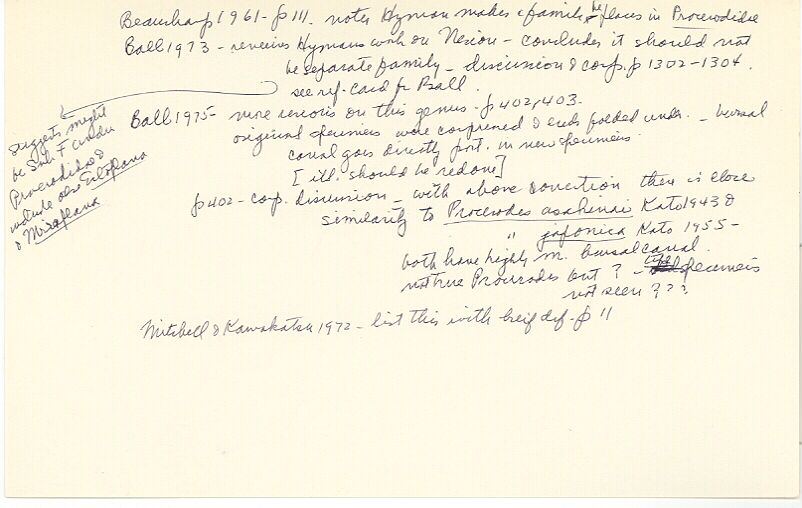 Beauchamp 1961 - p 111. notes Hyman makes a family, he places in Procerodidae
Ball 1973 - reviews Hymans work on Nesion - concludes it should not
be separate family - discussion & comp. p 1302-1304.
see ref. card for Ball.
suggests might
be Sub F under
Procerodidae &
include also Ectoplana
& Miroplana
Ball 1975 - more revisions on this genus - p 402, 403.
original specimens were compressed & ends folded under. - bursal
canal goes directly post. in new specimens
[ ill. should be redone]
p 402 - comp. discussion - with above correction there is close
similarity to Procerodes asahinai Kato 1943 &
" japonica Kato 1955 -
both have highly m. bursal canal.
not true Procerodes but ? - type specimens
not seen ? ? ?
Mitchell & Kawakatsu 1972 - list this with breif def - p 11